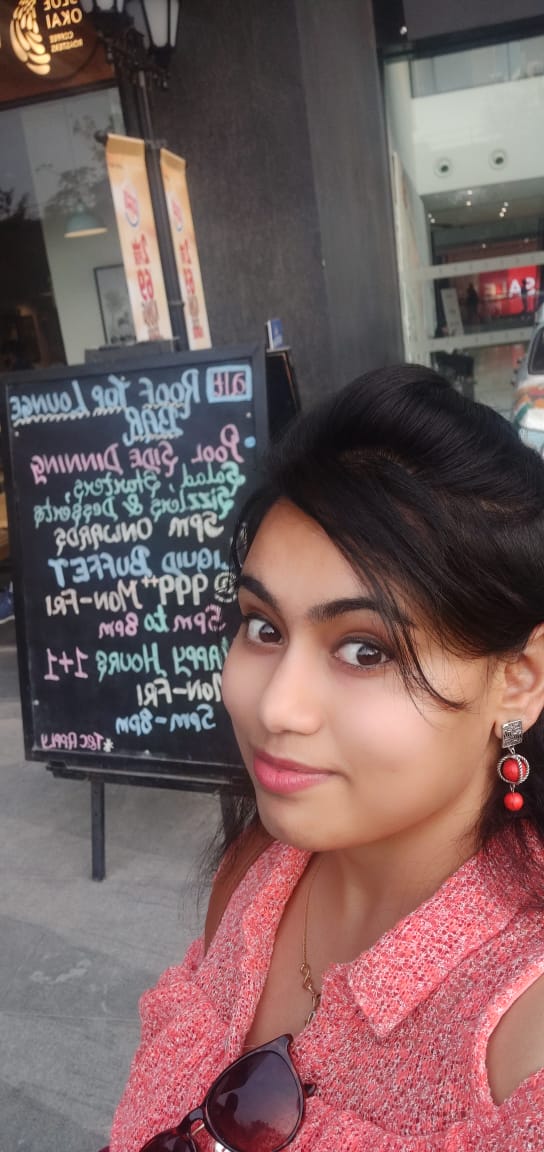 BLUE
OKAI
COFFEE
ROASTERS
SALE
alt ROOF TOP LOUNGE
BAR
POOL SIDE DINNING
Salad, Starters,
Sizzlers & Desserts
5PM ONWARDS
LIQUID BUFFET
@999++ MON-FRI
5pm to 8pm
APPY HOURS 1+1
MON-FRI
5pm-8pm
*T&C APPLY